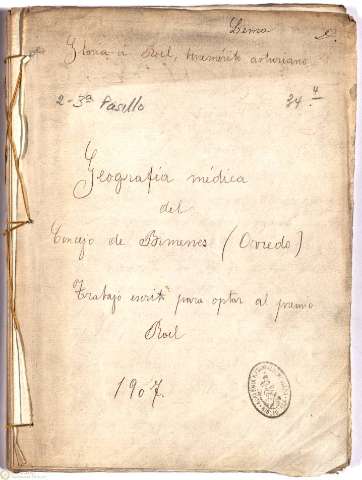 Lema
Gloria á Roel, benemérito asturiano
2-3ª Pasillo
34 4
Geografía médica
del
Concejo de Bimenes (Oviedo)
Trabajo escrito para optar al premio
Roel
1907.